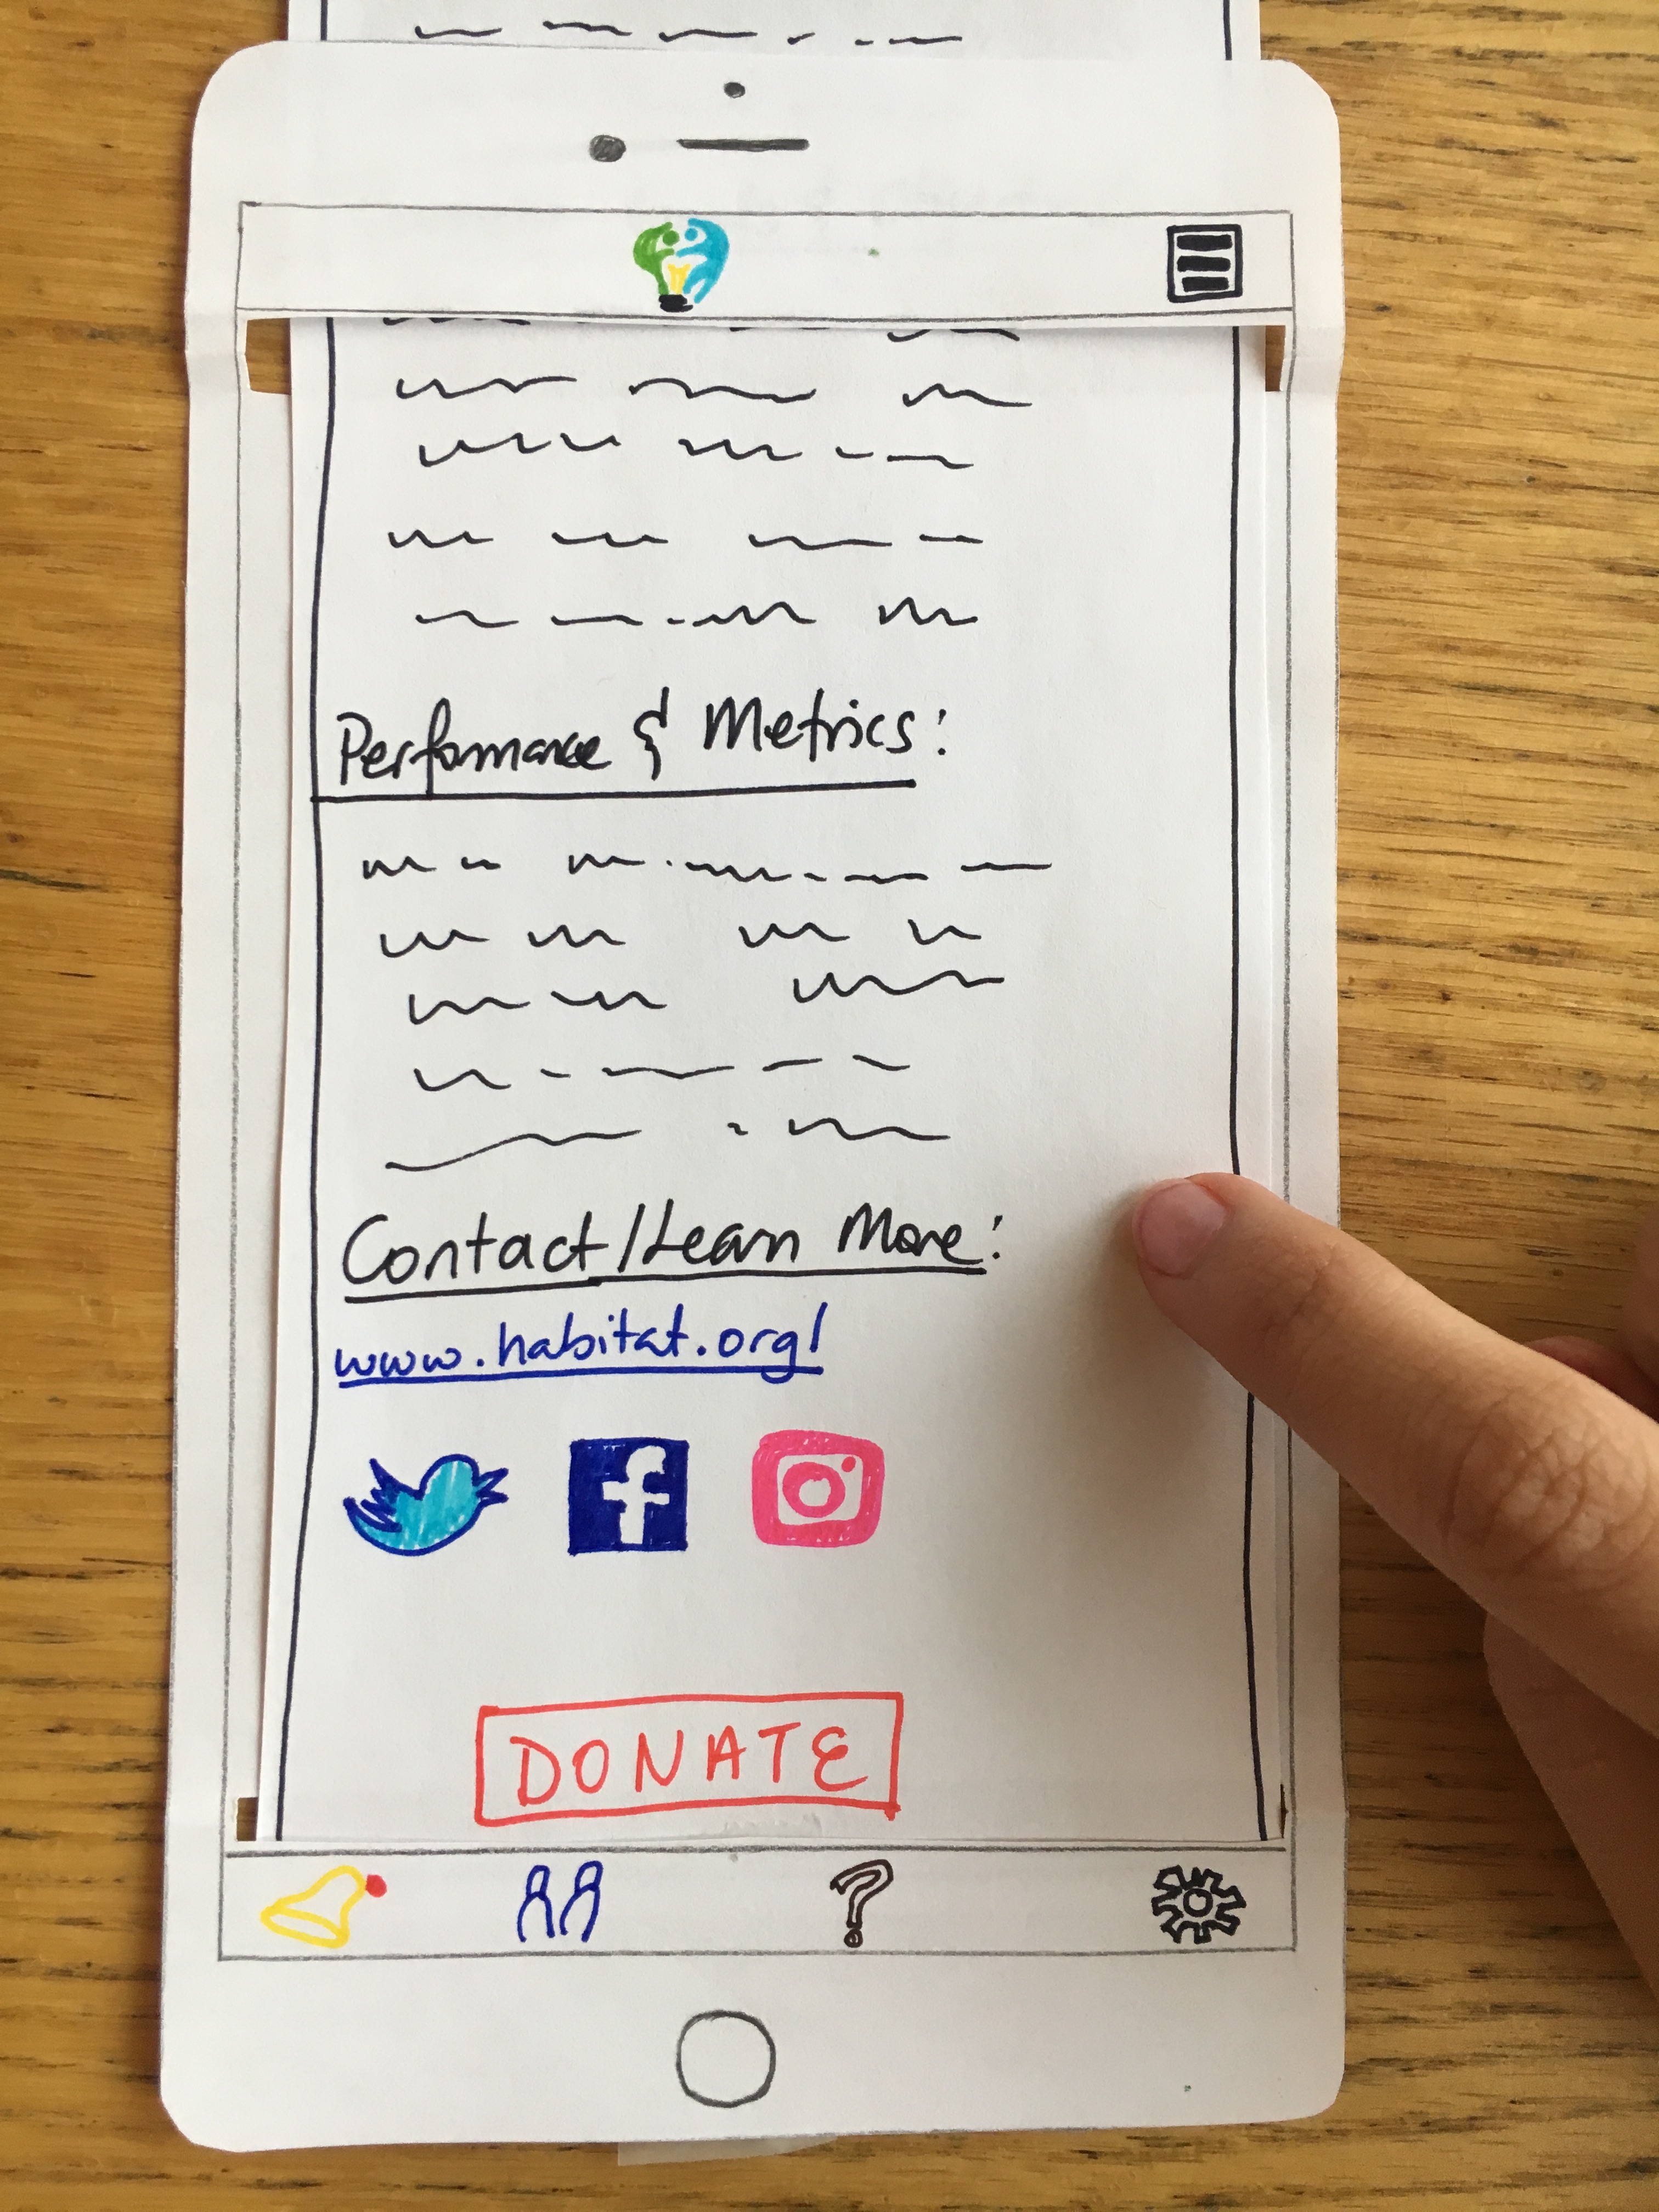 Performance & Metrics:
Contact/Learn More:
www.habitat.org/
DONATE
?